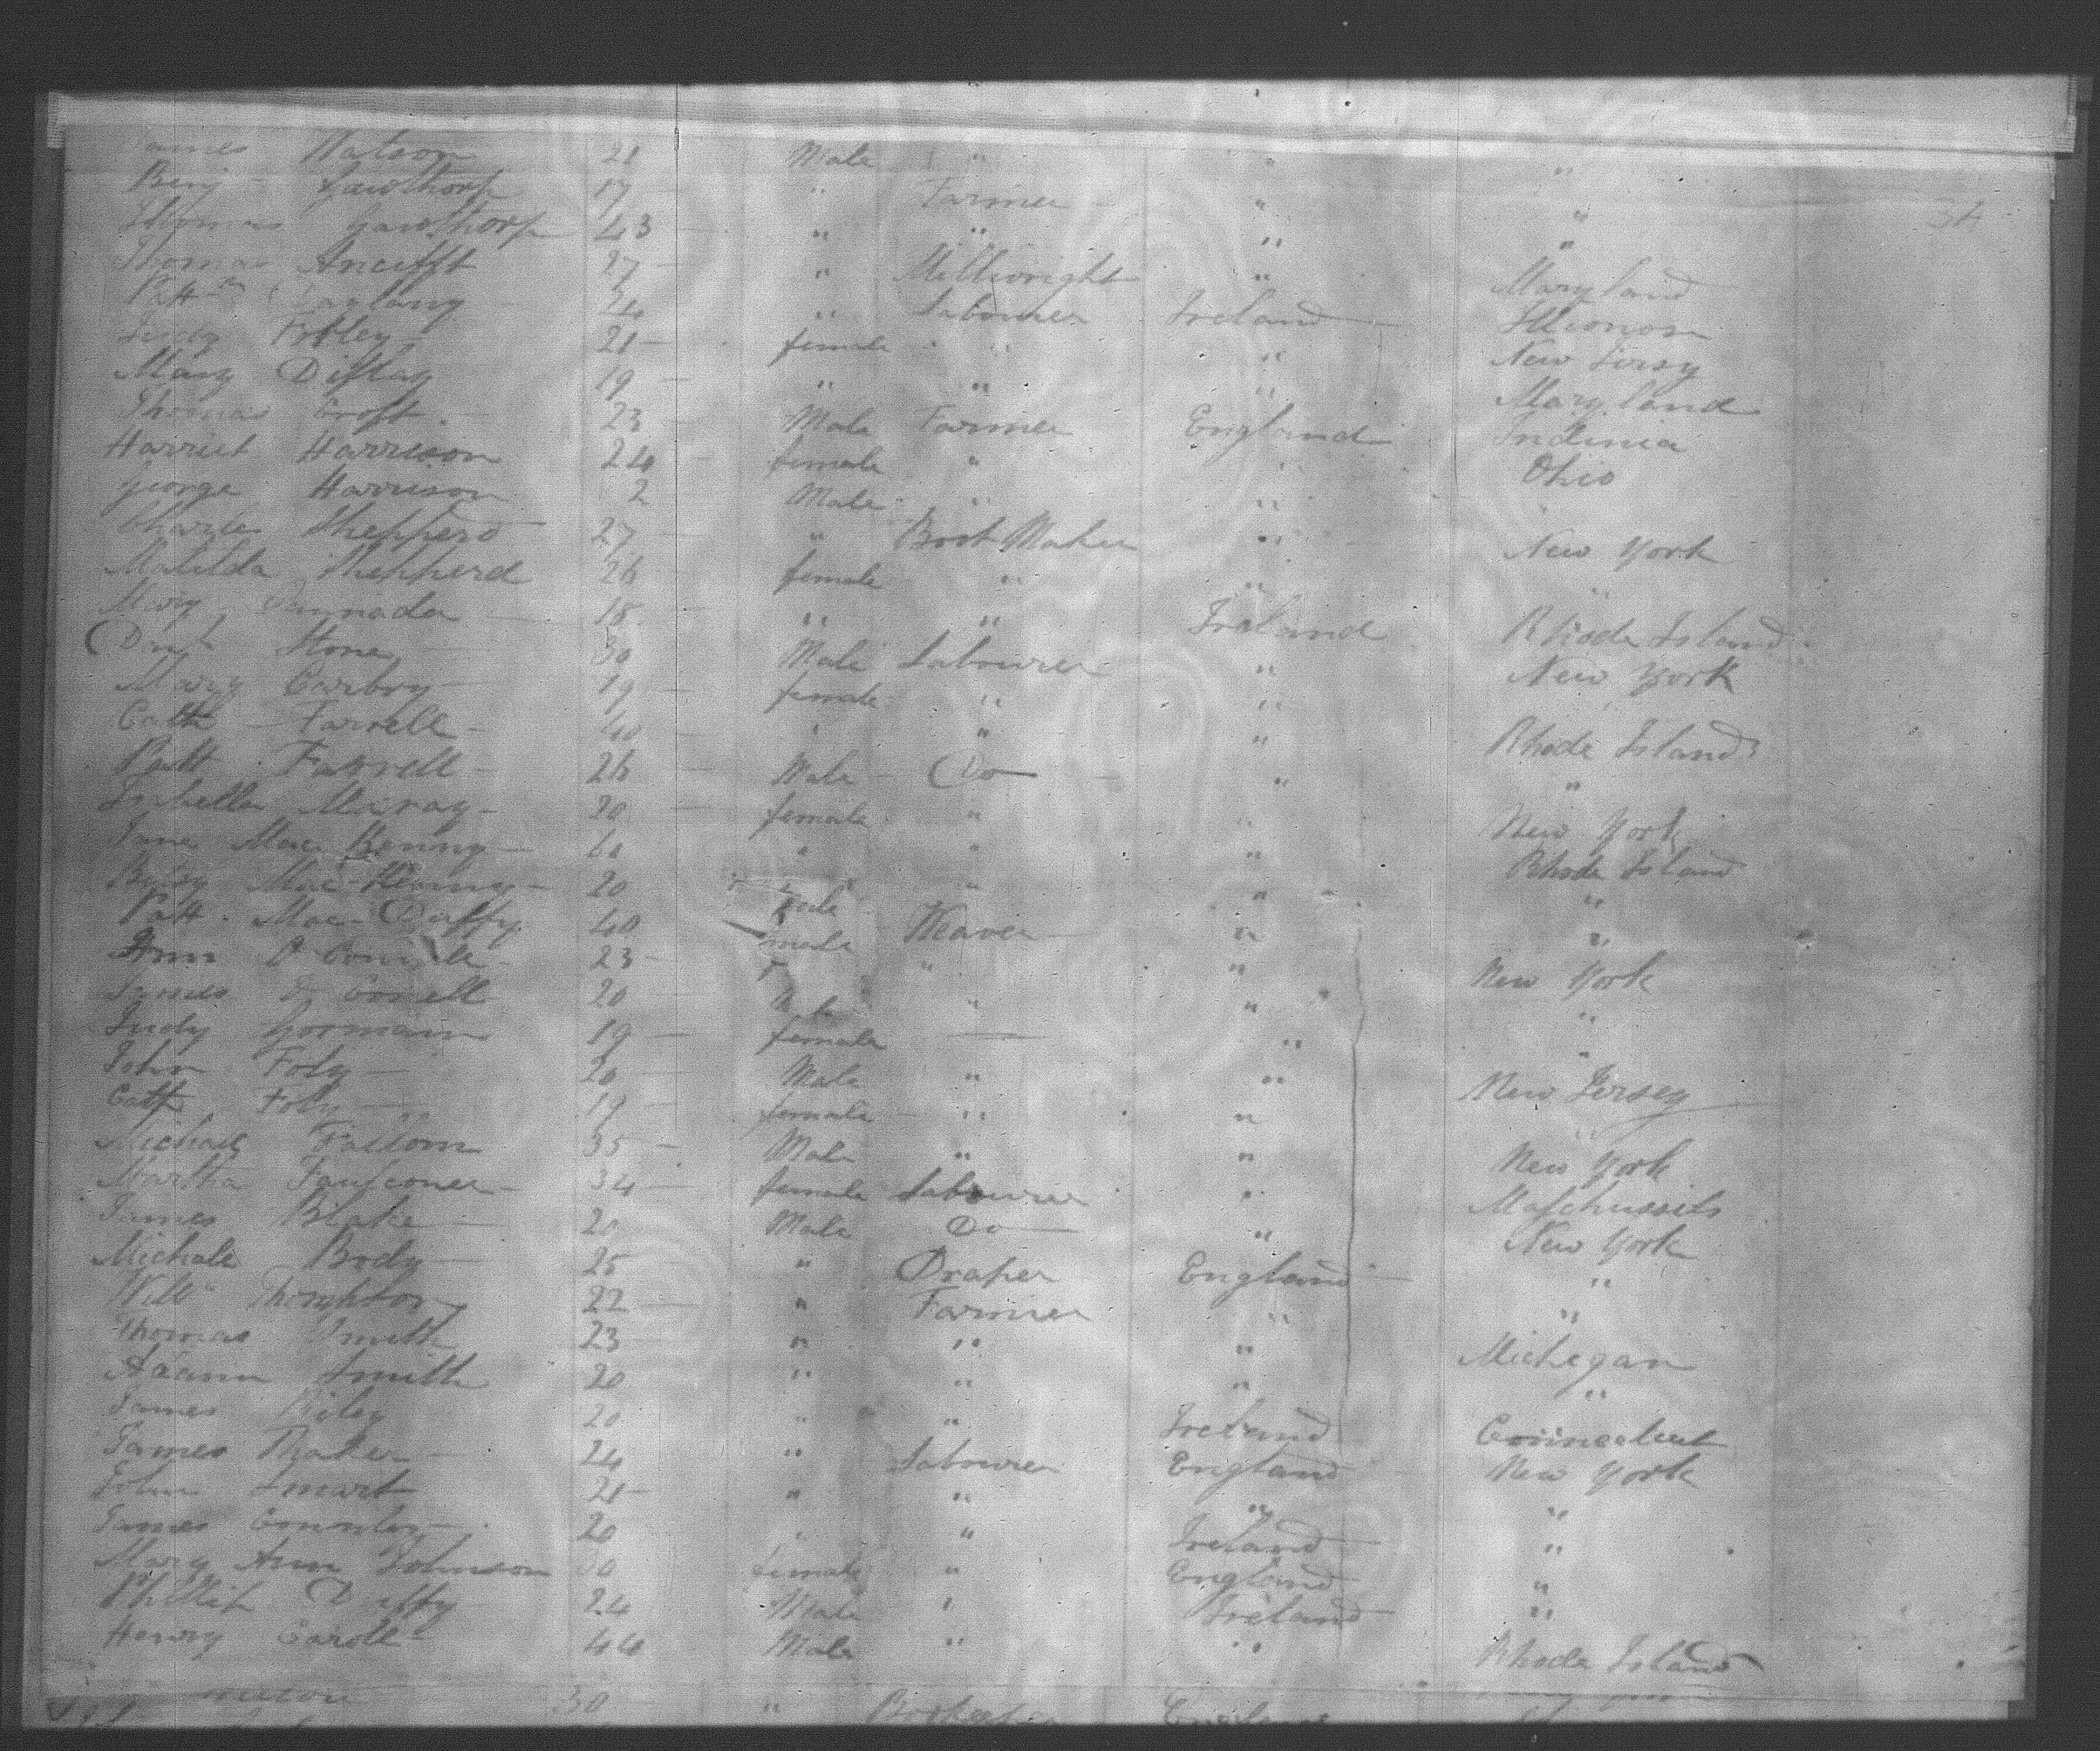 James Watson 21 Male " " "
Benj Gawthorp 17 " Farmer " "
Thomas Gawthorp 43 " " " "
Thomas 27 " Millwright " Maryland
Patt 24 " Labourer Ireland Illionois
Judy Foley 21 female " " New Jersy
Mary 19 " " " Maryland
Thomas Croft 23 Male Farmer England Indinia
Harriet Harrison 24 female " " Ohio
George Harrison 2 Male " " "
Charles Shepperd 27 " Boot Maker " New York
Matilda Shepherd 26 female " " "
Mary 18 " " Ireland Rhode Island
Danl Stone 30 Male Labourer " New York
Mary Carbry 19 female " "
Cath Farrell 40 " " " Rhode Island
Patt Farrell 26 Male Do " "
Isabella 20 female " " New York
Jane Mac Kenny 60 " " " Rhode Island
Betsy Mac Kenny 20 " " " "
Patt Mac Duffy 40 male Weaver " "
Ann 23 " " New York
James 20 Male " " "
Judy Gorman 19 female — " "
John Foly 20 Male " " New Jersey
Cath Foly 17 female " "
Michael Fallon 35 Male " " New York
Martha Faulconer 34 female Labourer " Maschussits
James Blake 20 Male Do " New York
Michale Body 25 " Draper England "
Willm Thorghton 22 " Farmer " "
Thomas Smith 23 " " " Michegan
Adann Smith 20 " " " "
James Riley 20 " " Ireland Connecticut
James Thaker 24 " Labourer England New York
John Smart 21 " " " "
James Connley 20 " " Ireland "
Mary Ann Johnson 30 female " England "
Phillip Duffy 24 Male " Ireland "
Henry Caroll 44 Male " " Rhode Island
30 " England